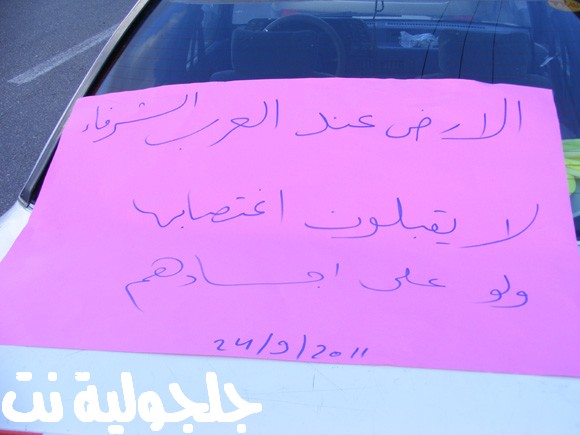 الارض عند العرب الشرفاء
لا يقبلون اغتصابها
ولو على اجسادهم
24/9/2011
جلجولية نت